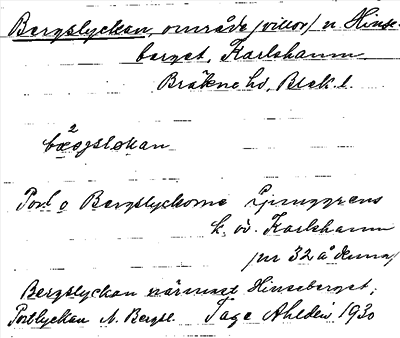 Bergslyckan, område (villor) n. Hinse-
berget, Karlshamn
Bräkne hd, Blek. l.
2
bæɹgsløkan
Port o Bergslyckorne Ljunggrens
k. öv. Karlshamn
32
Bergslyckan närmast Hinseberget,
Portlyckan N. Bergsl. Tage Ahldén 1930